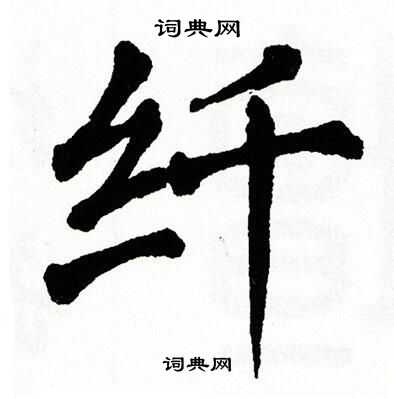 词典网
纤
词典网